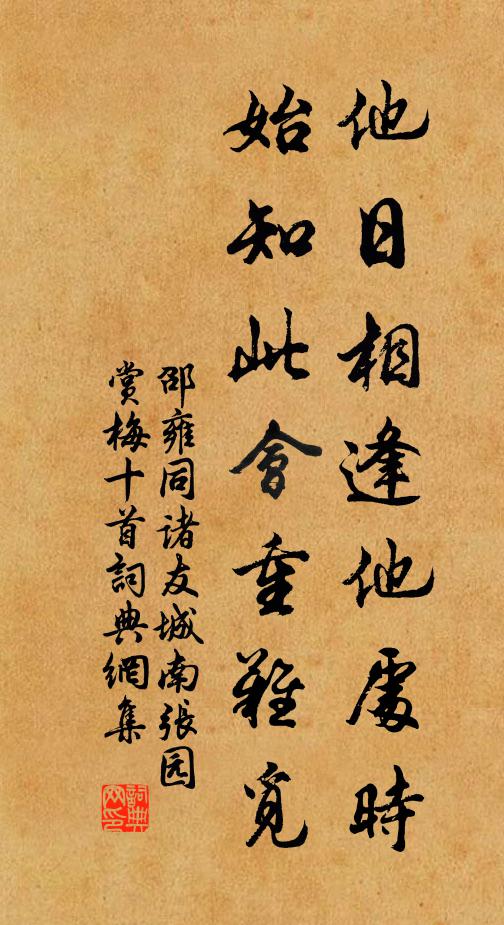 他日相逢他處時
始知此會重難覓
邵雍同诸友城南張园
賞梅十首詞典網集
詞典網印